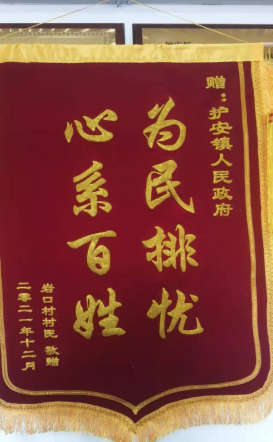 赠：护安镇人民政府
为民排忧
心系百姓
岩口村村民 敬赠
二零二一年十二月